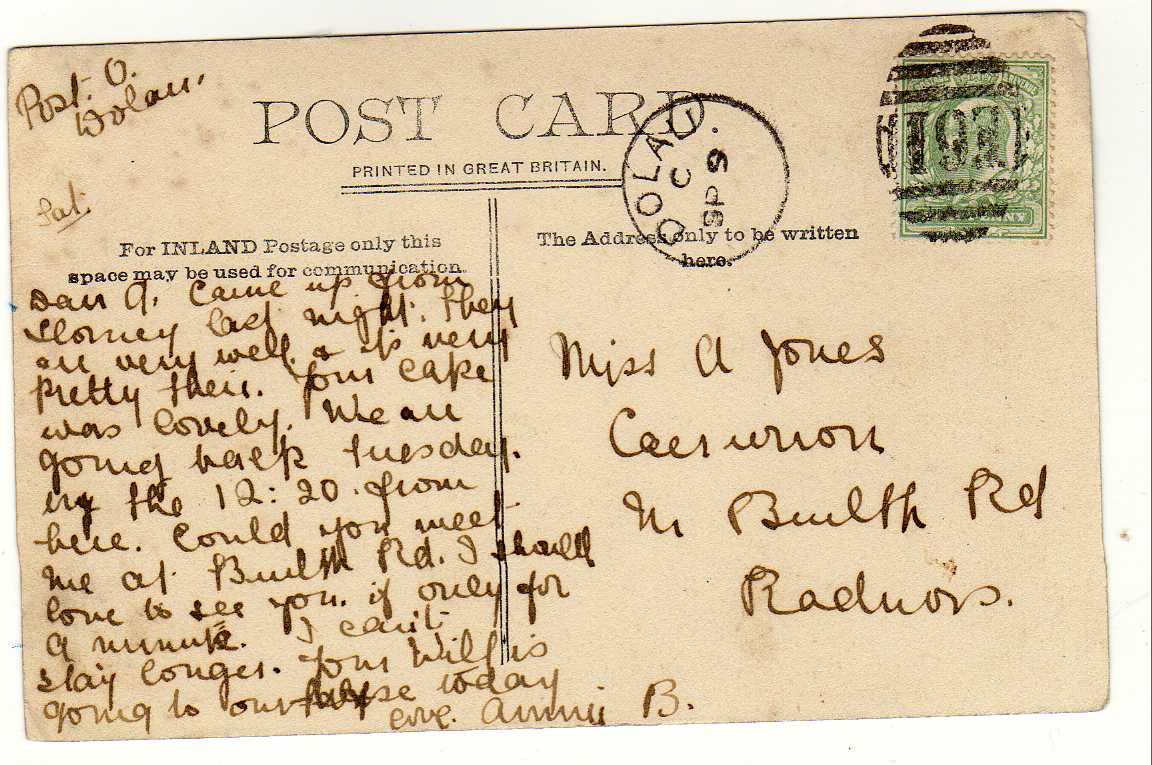 Post. O.
Dolau.
POST CARD
PRINTED IN GREAT BRITAIN.
DOLAU
C
SP 9
Sat.
For INLAND Postage only this
space may be used for communication.
The Address only to be written
here.
Dear A. Came up from
last night. They
are very well & its very
pretty their. Your cake
was lovely. We are
going back Tuesday.
by the 12:20 from
here. Could you meet
me at Builth Rd. I should
love to see you. if only for
a minute. I can't
stay longer. Your Will is
going to our today
love. Annie B.
Miss A Jones
Nr Builth Rd
Radnors.